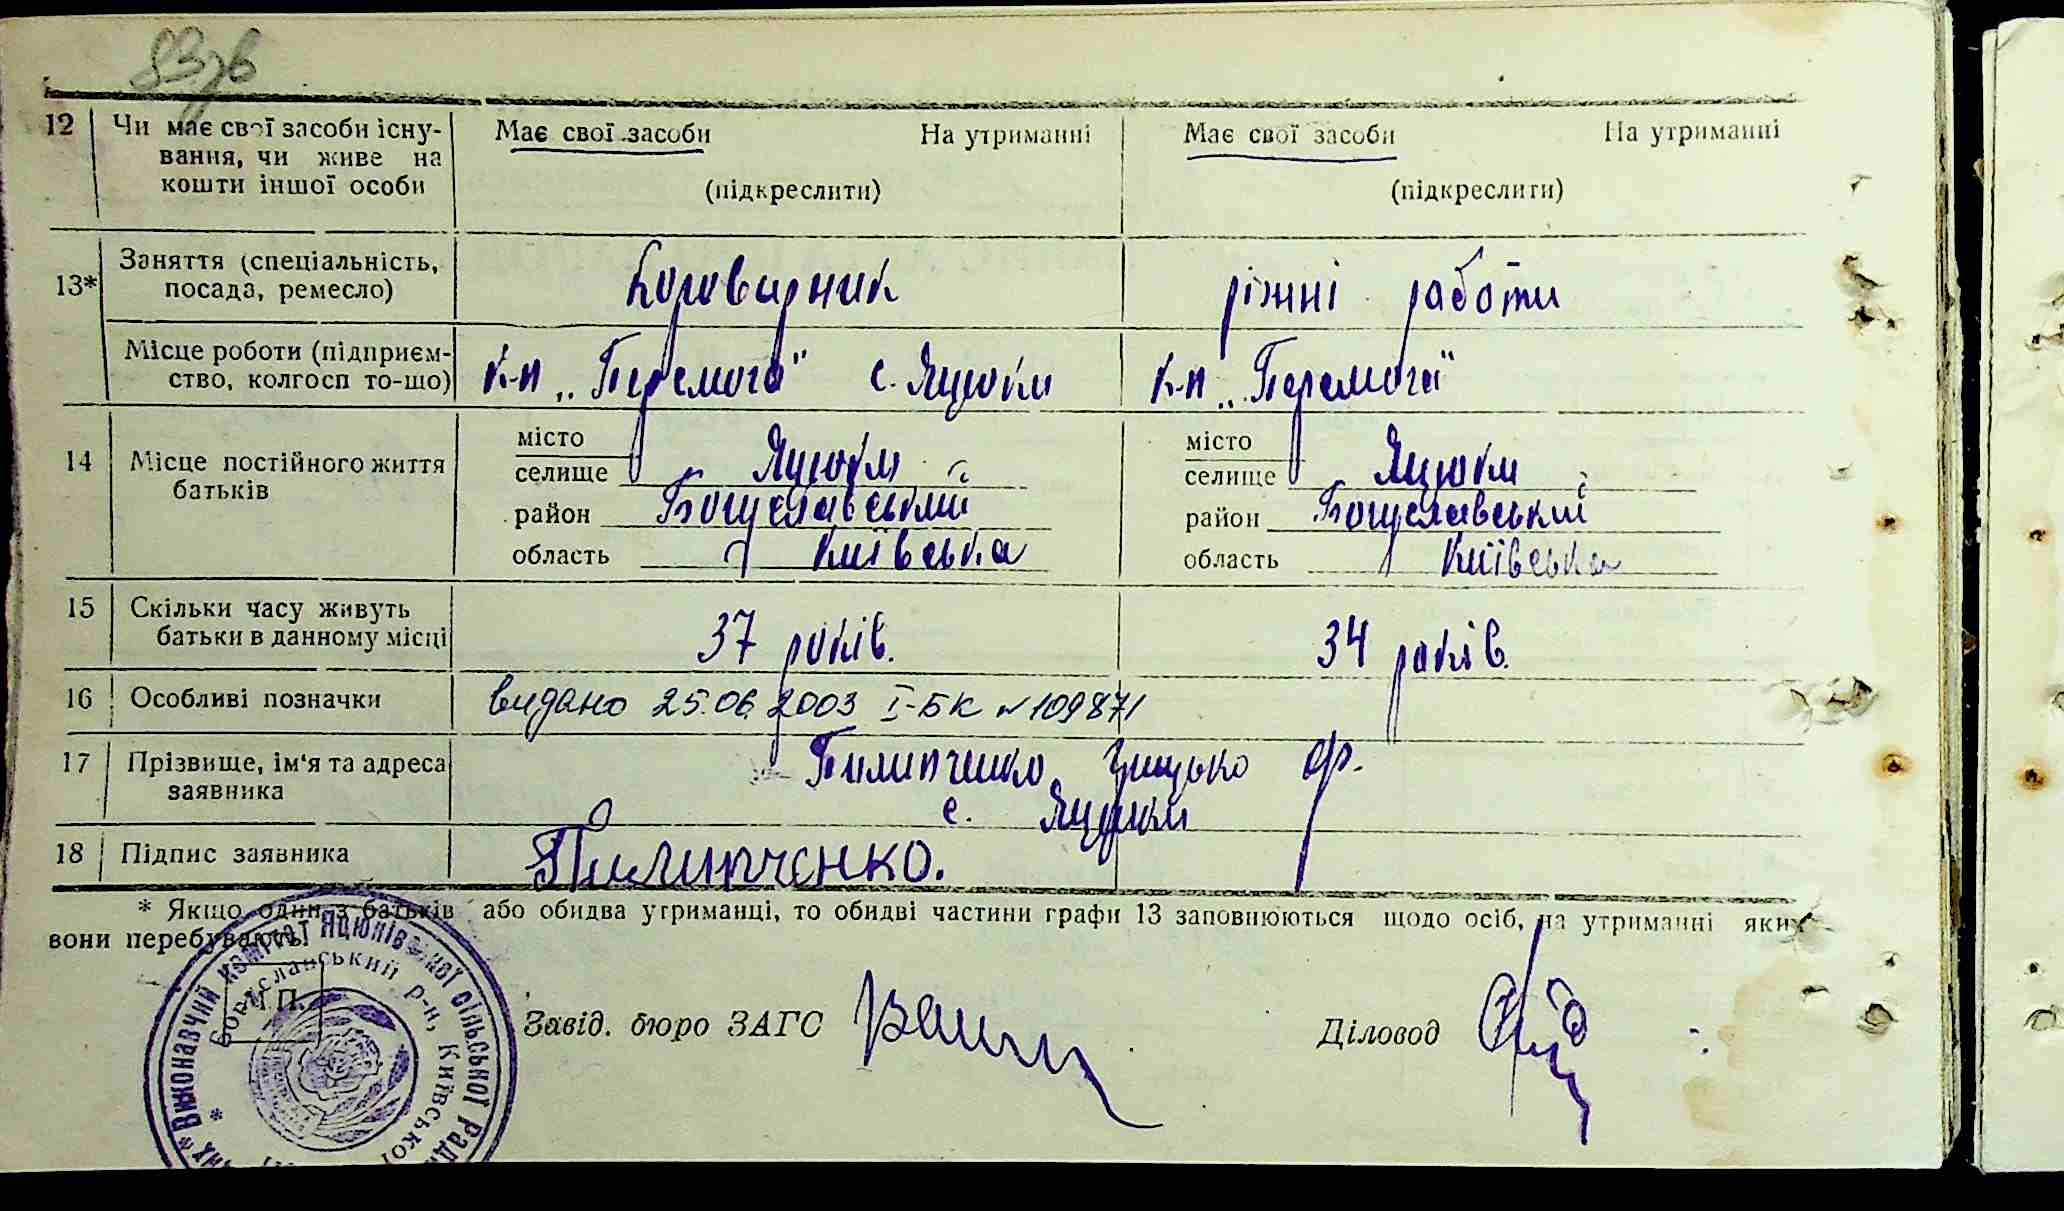 83зв
12 Чи має свої засоби існу- Має свої засоби На утриманні Має свої засоби На утриманні
вання, чи живе на
кошти іншої особи (підкреслити) (підкреслити)
13* Заняття (спеціальність, посада, ремесло) Коровирник ріжні работи
Місце роботи (підприєм- к-п „Перемога" с. Яцюки к-п „Перемога"
ство, колгосп то-що)
14 Місце постійного життя батьків
місто
селище Яцюки
район Богуславський
область Київська
місто
селище Яцюки
район Богуславський
область Київська
15 Скільки часу живуть 37 років. 34 років.
батьки в данному місці
16 Особливі позначки видано 25.06.2003 І-БК №109871
17 Прізвище, ім'я та адреса Пилипченко Грицько Ф.
заявника с. Яцюки
18 Підпис заявника Пилипченко.
* Якщо один з батьків або обидва утриманці, то обидві частини графи 13 заповнюються щодо осіб, на утриманні яких
вони перебувають.
Виконавчий комітет Яцюківської сільської Ради
Богуславський р-н, Київської
П.
Завід. бюро ЗАГС Діловод